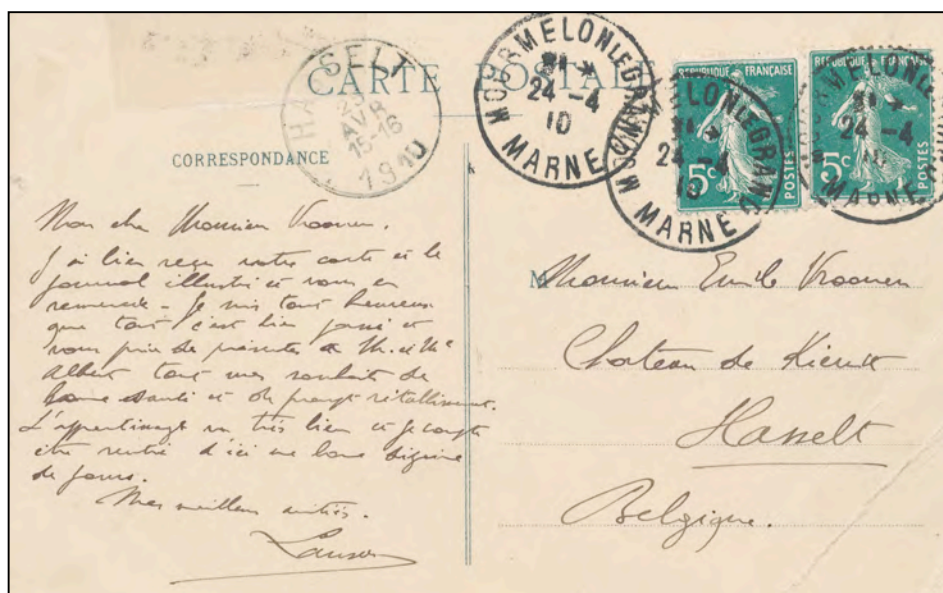 CARTE POSTALE
CORRESPONDANCE
HASSELT
25
AVR
15-16
1910
MOURMELON LE GRAND
24 -4
10
MARNE
MOURMELON LE GRAND
24 -4
10
MARNE
MOURMELON LE GRAND
24 -4
10
MARNE
REPUBLIQUE FRANÇAISE
5c
POSTES
REPUBLIQUE FRANÇAISE
5c
POSTES
Mon cher Monsieur Vroonen.
J'ai bien reçu votre carte et le
journal illustré et vous en
remercie - Je suis tout heureux
que tout c'est bien passé et
vous prie de présenter à M. et Me
Albert tout mes souhaits de
bonne santé et de prompt rétablissement.
L'apprentissage va très bien et je compte
être rentré d'ici une bonne dizaine
de jours.
Mes meilleurs amitiés.
M Monsieur Emile Vroonen
Chateau de Kiewit
Hasselt
Belgique.